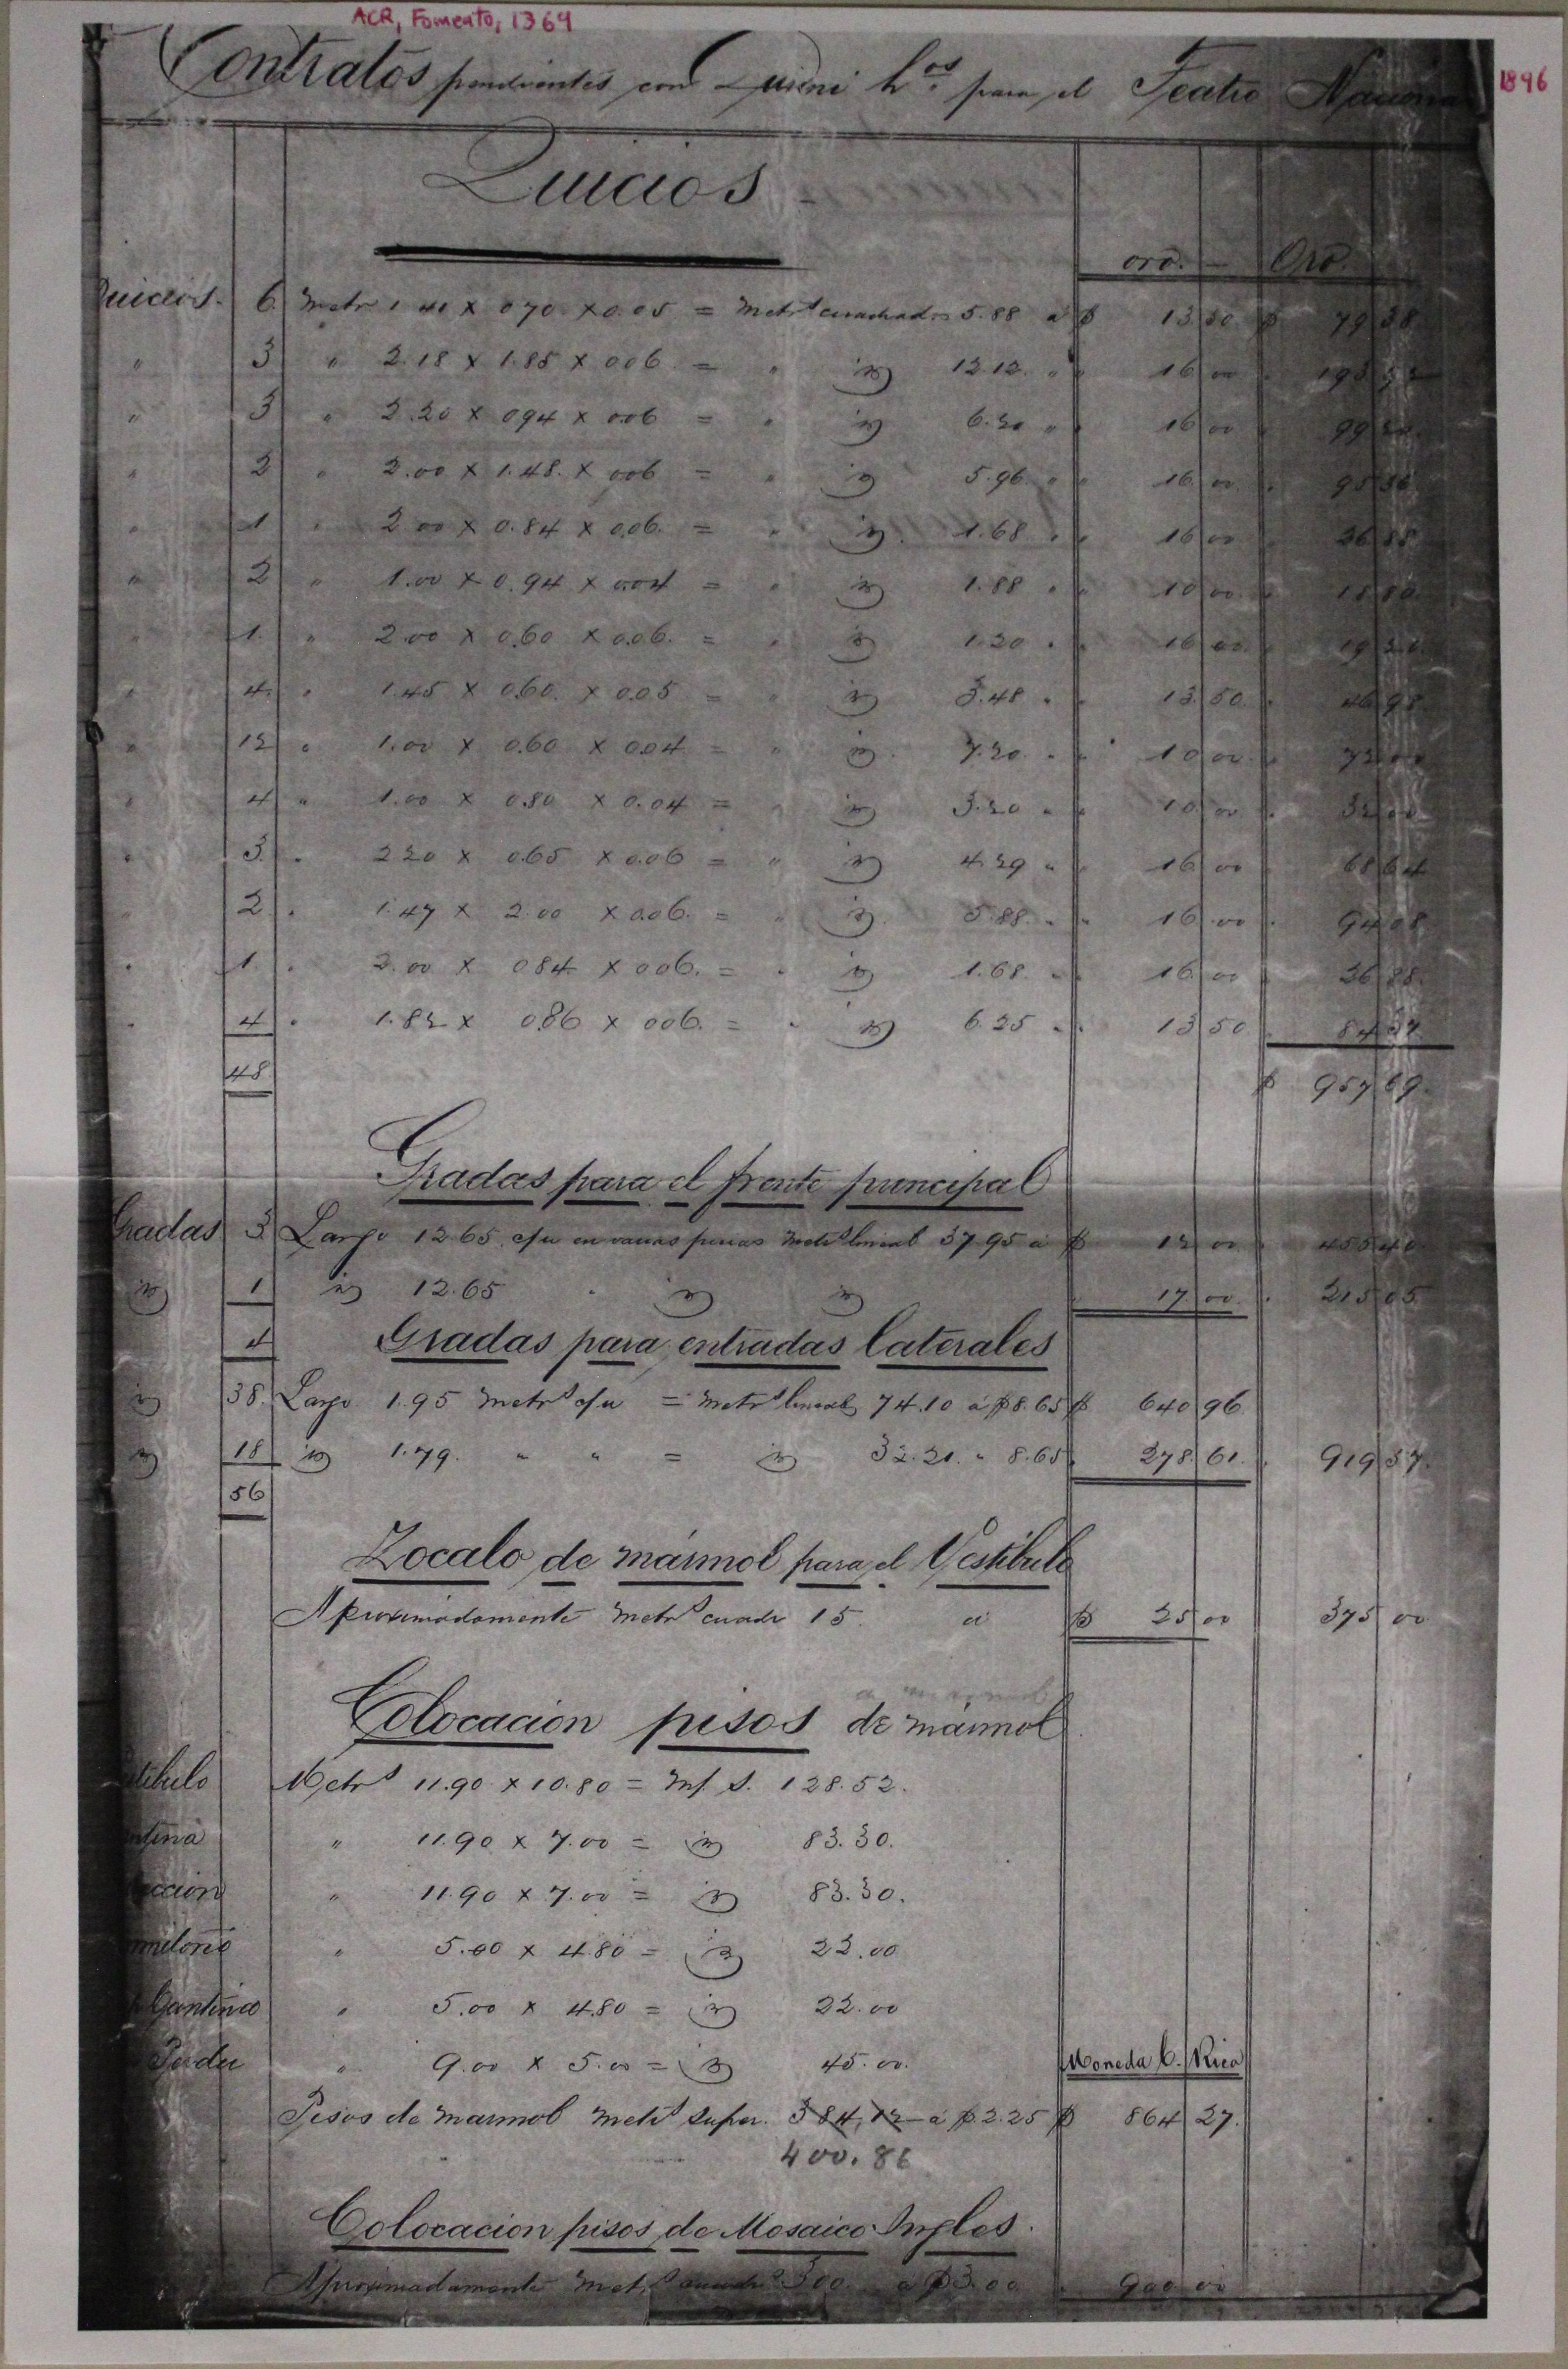 ACR, Fomento, 1364
1896
Contratos pendientes con h.os para el Teatro Nacional
Quicios
oro. — Oro.
Quicios. 6. Metr 1 40 x 070 x 0.05 = Metrs cuadrados 5.88 a $ 13.50 $ 79 38
" 3 " 2.18 x 1.85 x 006 = " id 12.12. " " 16 00
" 3 " 2.20 x 094 x 006 = " id 6.20 " " 16 00 " 99 20
" 2 " 2.00 x 1.48. x 006 = " id 5.96 " " 16 00 " 95 36
" 1 " 2 00 x 0.84 x 0.06. = " id. 1.68 " " 16 00 " 26 88
" 2 " 1.00 x 0.94 x 0.04 = " id 1.88 " " 10 00 " 18 80
" 1. " 2.00 x 0.60 x 0.06. = " id 1.20 " " 16 00 " 19 20
" 4. " 1.45 x 0.60. x 0.05 = " id 3.48 " " 13 50 " 46 98
" 12 " 1.00 x 0.60 x 0.04 = " id. 7.20. " " 10 00 " 72 00
" 4 " 1.00 x 0.80 x 0.04 = " id 3.20 " " 10 00 " 32 00
" 3. " 2 20 x 0.65 x 0.06 = " id 4.29 " " 16 00 " 68 64
" 2 " 1.47 x 2.00 x 0.06. = " id. 5.88. " " 16 00 " 94 08
" 1. " 2.00 x 084 x 006. = " id 1.68. " " 16 00 " 26 88.
" 4 " 1.82 x 0.86 x 006. = " id 6.25 " " 13 50 " 84 37
48 $ 957 69.
Gradas para el frente principal
Gradas 3 Largo 12.65 c/u en varias piezas Metrs lineal 37.95 a $ 12 00 " 455 40
id 1 id 12.65 " id id 17 00 " 215 05
4 Gradas para entradas laterales
id 38. Largo 1.95 Metrs c/u = Metrs lineal 74.10 a $ 8.65 $ 640 96
id 18 id 1.79. " " = id 32.21. " 8.65 278. 61. " 919 57.
56
Zocalo de mármol para el Vestibulo
Aproximadamente Metrs cuadr 15. a $ 25 00 375 00
Colocacion pisos de mármol
tibulo Metrs 11.90 x 10.80 = M/. S. 128.52.
ntina " 11.90 x 7.00 = id 83.30.
ccion " 11.90 x 7.00 = id 83.30.
" 5.00 x 4.80 = id 22.00
Cantina " 5.00 x 4.80 = id 22.00
" 9.00 x 5.00 = id 45.00.
Moneda C. Rica
Pisos de marmol metrs super. 384,12 a $ 2.25 $ 864 27.
400.86
Colocacion pisos de Mosaico Ingles.
Aproximadamente metrs cuadr 300 a $3.00 " 900 00